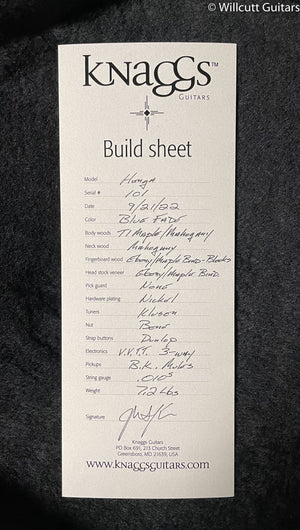 © Willcutt Guitars
KNAGGS™
GUITARS
Build sheet
Model Honga
Serial # 101
Date 9/21/22
Color BLUE FADE
Body woods T1 Maple/Mahogany
Neck wood Mahogany
Fingerboard wood Ebony/Maple Bind-Blocks
Head stock veneer Ebony/Maple Bind.
Pick guard None
Hardware plating Nickel
Tuners Kluson
Nut Bone
Strap buttons Dunlop
Electronics V.V.T.T. 3-way
Pickups B.K. Mules
String gauge .010s
Weight 7.2 Lbs
Signature
Knaggs Guitars
PO Box 691, 213 Church Street
Greensboro, MD 21639, USA
www.knaggsguitars.com